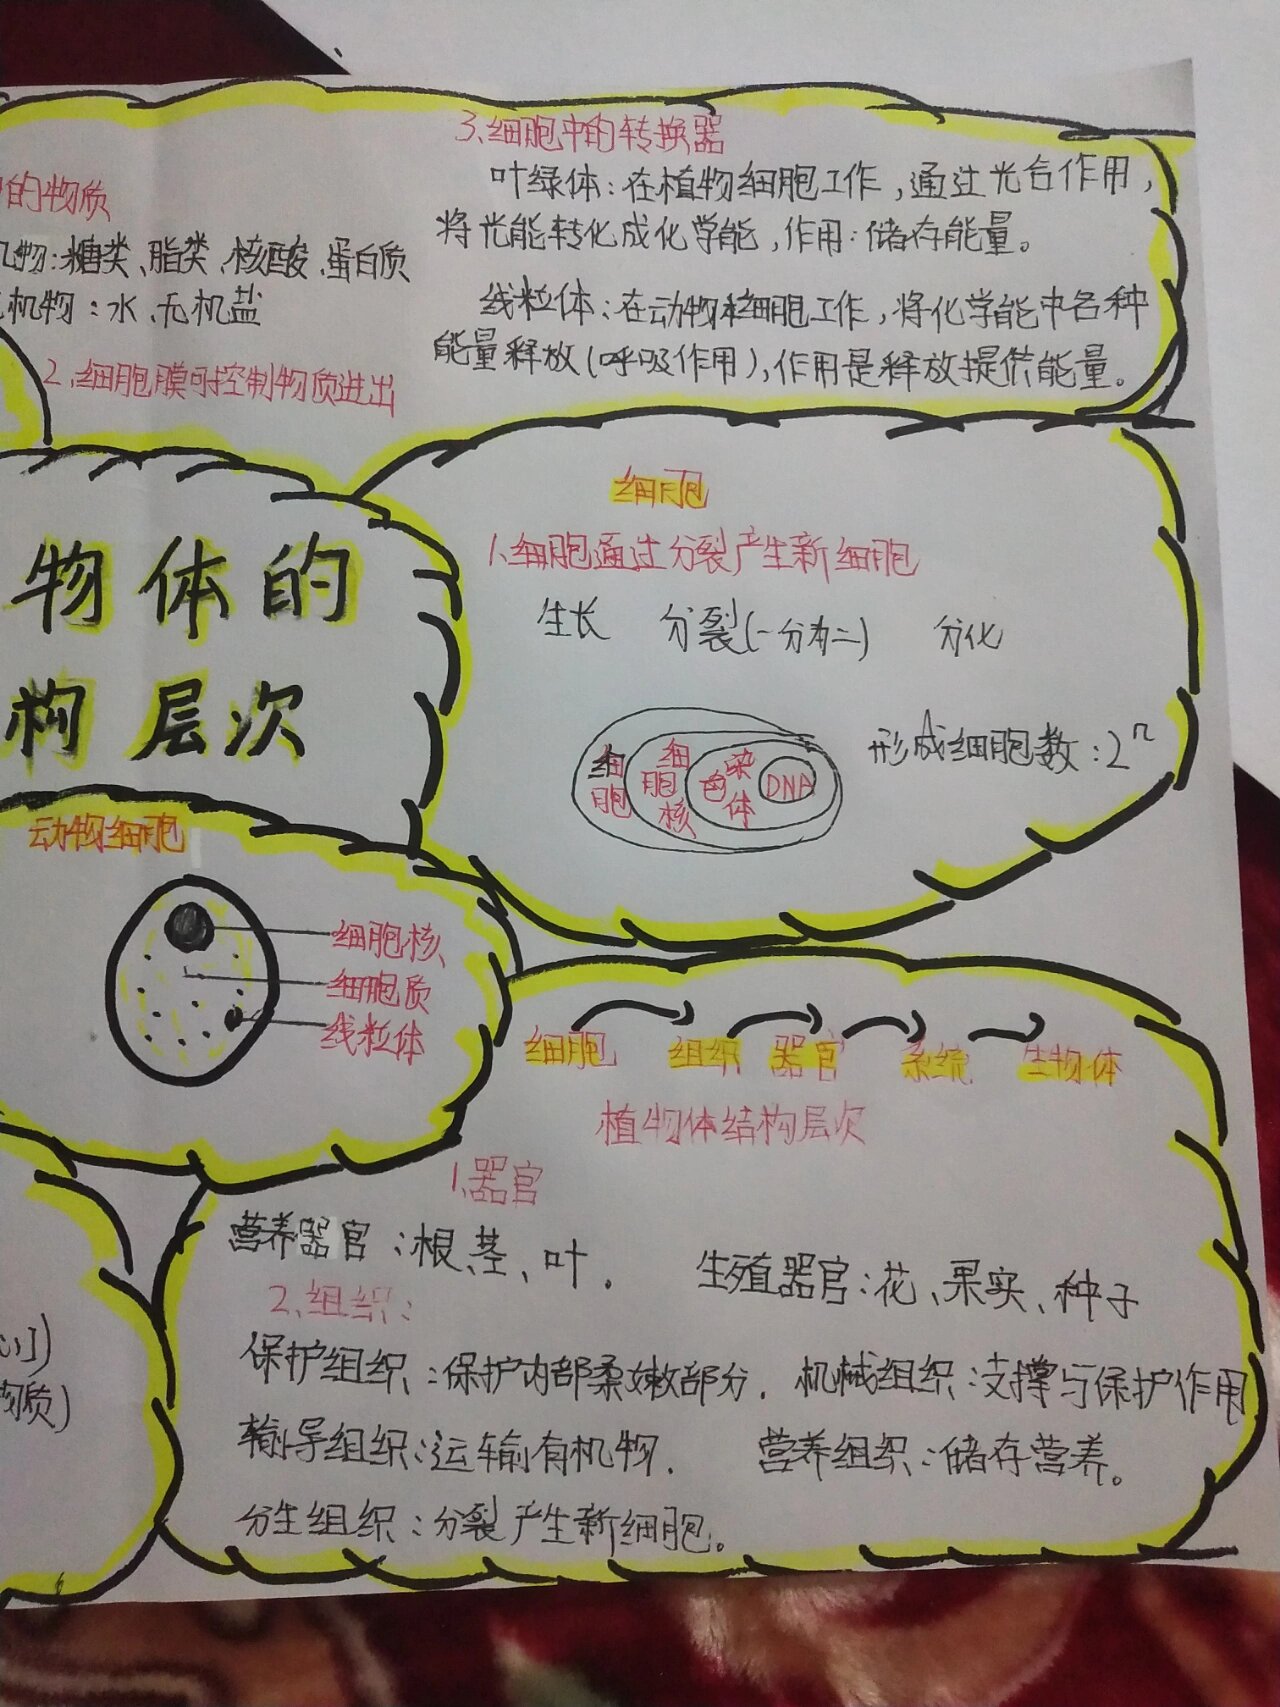 3、细胞中的转换器
叶绿体：在植物细胞工作，通过光合作用，
将光能转化成化学能，作用：储存能量。
线粒体：在动物细胞工作，将化学能中各种
能量释放(呼吸作用)，作用是释放提供能量。
的物质
机物：糖类、脂类、核酸、蛋白质
机物：水、无机盐
2、细胞膜可控制物质进出
物体的
构层次
细胞
1、细胞通过分裂产生新细胞
生长 分裂(一分为二) 分化
细胞 细胞核 染色体 DNA
形成细胞数：2ⁿ
动物细胞
细胞核
细胞质
线粒体
细胞 组织 器官 系统 生物体
植物体结构层次
1、器官
营养器官：根、茎、叶. 生殖器官：花、果实、种子
2、组织：
保护组织：保护内部柔嫩部分. 机械组织：支撑与保护作用
输导组织：运输有机物. 营养组织：储存营养。
分生组织：分裂产生新细胞。
物质)